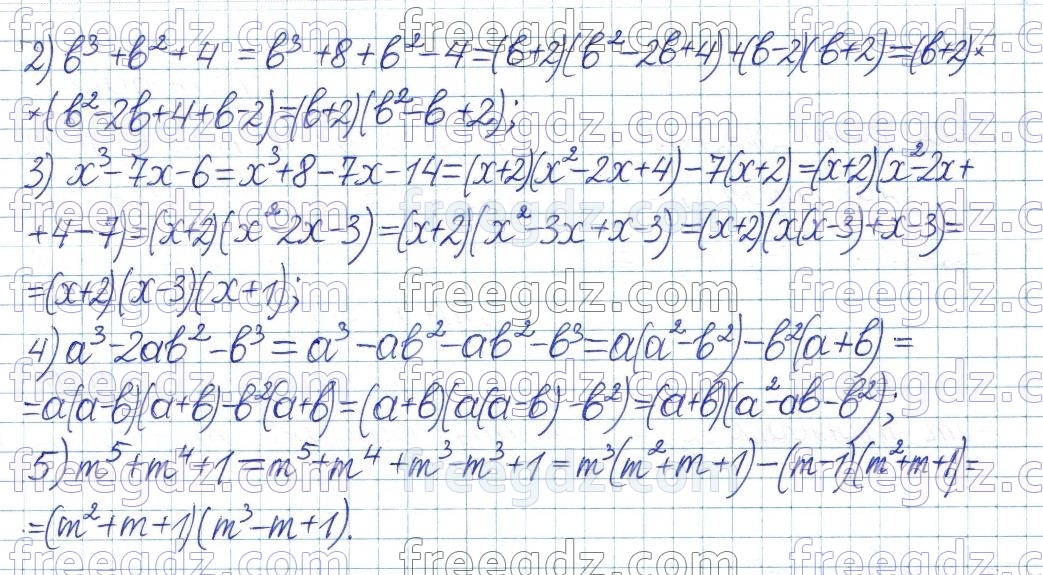 2) b³ + b² + 4 = b³ + 8 + b² - 4 = (b+2)(b² - 2b + 4) + (b-2)(b+2) = (b+2) ×
× (b² - 2b + 4 + b - 2) = (b+2)(b² - b + 2);
3) x³ - 7x - 6 = x³ + 8 - 7x - 14 = (x+2)(x² - 2x + 4) - 7(x+2) = (x+2)(x² - 2x +
+ 4 - 7) = (x+2)(x² 2x - 3) = (x+2)(x² - 3x + x - 3) = (x+2)(x(x-3) + x - 3) =
= (x+2)(x-3)(x+1);
4) a³ - 2ab² - b³ = a³ - ab² - ab² - b³ = a(a² - b²) - b²(a+b) =
= a(a-b)(a+b) - b²(a+b) = (a+b)(a(a-b) - b²) = (a+b)(a² - ab - b²);
5) m⁵ + m⁴ + 1 = m⁵ + m⁴ + m³ - m³ + 1 = m³(m² + m + 1) - (m-1)(m² + m + 1) =
= (m² + m + 1)(m³ - m + 1).
freegdz.com